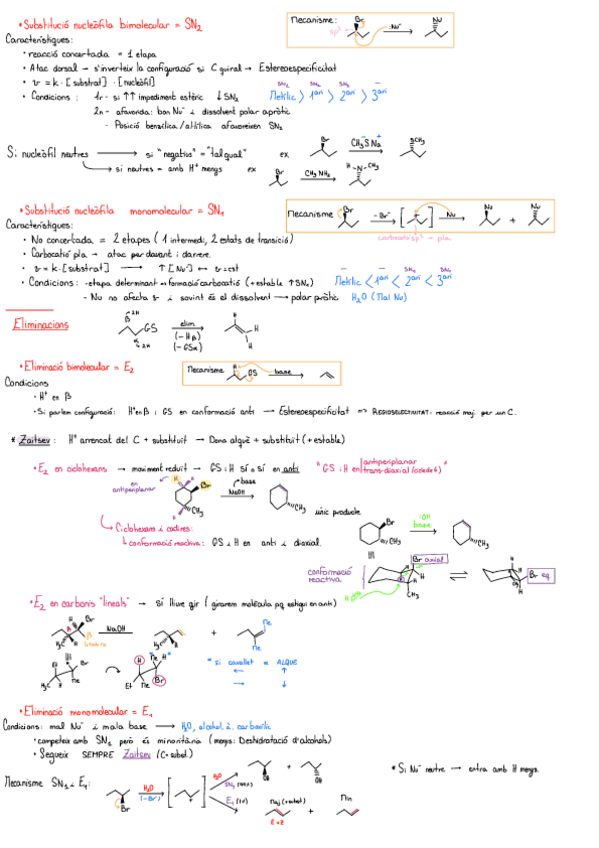 • Substitució nucleòfila bimolecular = SN2
Característiques:
• reacció concertada = 1 etapa
• Atac dorsal → s'inverteix la configuració si C quiral → Estereoespecificitat
• v = k · [substrat] · [nucleòfil]
• Condicions : 1r - si ↑↑ impediment estèric ↓ SN2
SN2 SN2 SN2 -
Metílic > 1ari > 2ari > 3ari
2n - afavorida: bon Nu- i dissolvent polar apròtic
- Posició benzílica / al·lílica afavoreixen SN2
Mecanisme:
sp3
Br
:Nu-
Nu
Si nucleòfil neutres → si "negatius" = "tal qual" ex
Br
CH3S Na
- +
SCH3
si neutres = amb H+ menys ex
Br
CH3 NH2
H N CH3
• Substitució nucleòfila monomolecular = SN1
Característiques:
• No concertada = 2 etapes (1 intermedi, 2 estats de transició)
• Carbocatió pla → atac per davant i darrere.
• v = k · [substrat] → ↑ [Nu-] ↔ v = cst
• Condicions: - etapa determinant = formació carbocatió (+ estable ↑ SN1)
- - SN1 SN1
Metílic < 1ari < 2ari < 3ari
- Nu no afecta v i sovint és el dissolvent → polar pròtic H2O (Mal Nu)
Mecanisme
Br
- Br-
+
Nu
Nu
+
Nu
carbocatió sp2 → pla
Eliminacions
β 2H
GS
α 2H
elim
(- Hβ)
(- GSα)
H
H
H
• Eliminació bimolecular = E2
Condicions
• H+ en β
• Si parlem configuració: H+ en β i GS en conformació anti → Estereoespecificitat => REGIOSELECTIVITAT: reacció maj. per un C.
Mecanisme
H
GS
base
* Zaitsev : H+ arrencat del C + substituït → Dona alquè + substituït (+ estable)
• E2 en ciclohexans → moviment reduït → GS i H sí o sí en anti
"GS i H en antiperiplanar
trans-diaxial (cicle de 6) "
en
antiperiplanar
H
Br
CH3
base
NaOH
CH3
únic producte
Ciclohexans i cadires:
conformació reactiva: GS i H en anti i diaxial.
Br
CH3
:OH
base
CH3
conformació
reactiva
Br axial
H
H
H
CH3
Br eq
• E2 en carbonis "lineals" → Si lliure gir (girarem molècula pq estigui en anti)
H
Br
H3C
β
NaOH
+
Me
Me
* si cavallet = ALQUÈ
Et
Me
Br
H3C
H
H
Me
H
Et
Me
Br
• Eliminació monomolecular = E1
Condicions: mal Nu- i mala base → H2O, alcohol, à. carboxílic
• competeix amb SN1 però és minoritària (menys: Deshidratació d'alcohols)
• Segueix SEMPRE Zaitsev (C + subst.)
* Si Nu- neutre → entra amb H menys.
Mecanisme SN1 i E1:
Br
H2O
(- Br-)
+
H2O
SN1
OH
+
OH
E1
Maj (+ subst)
E + Z
+
Min